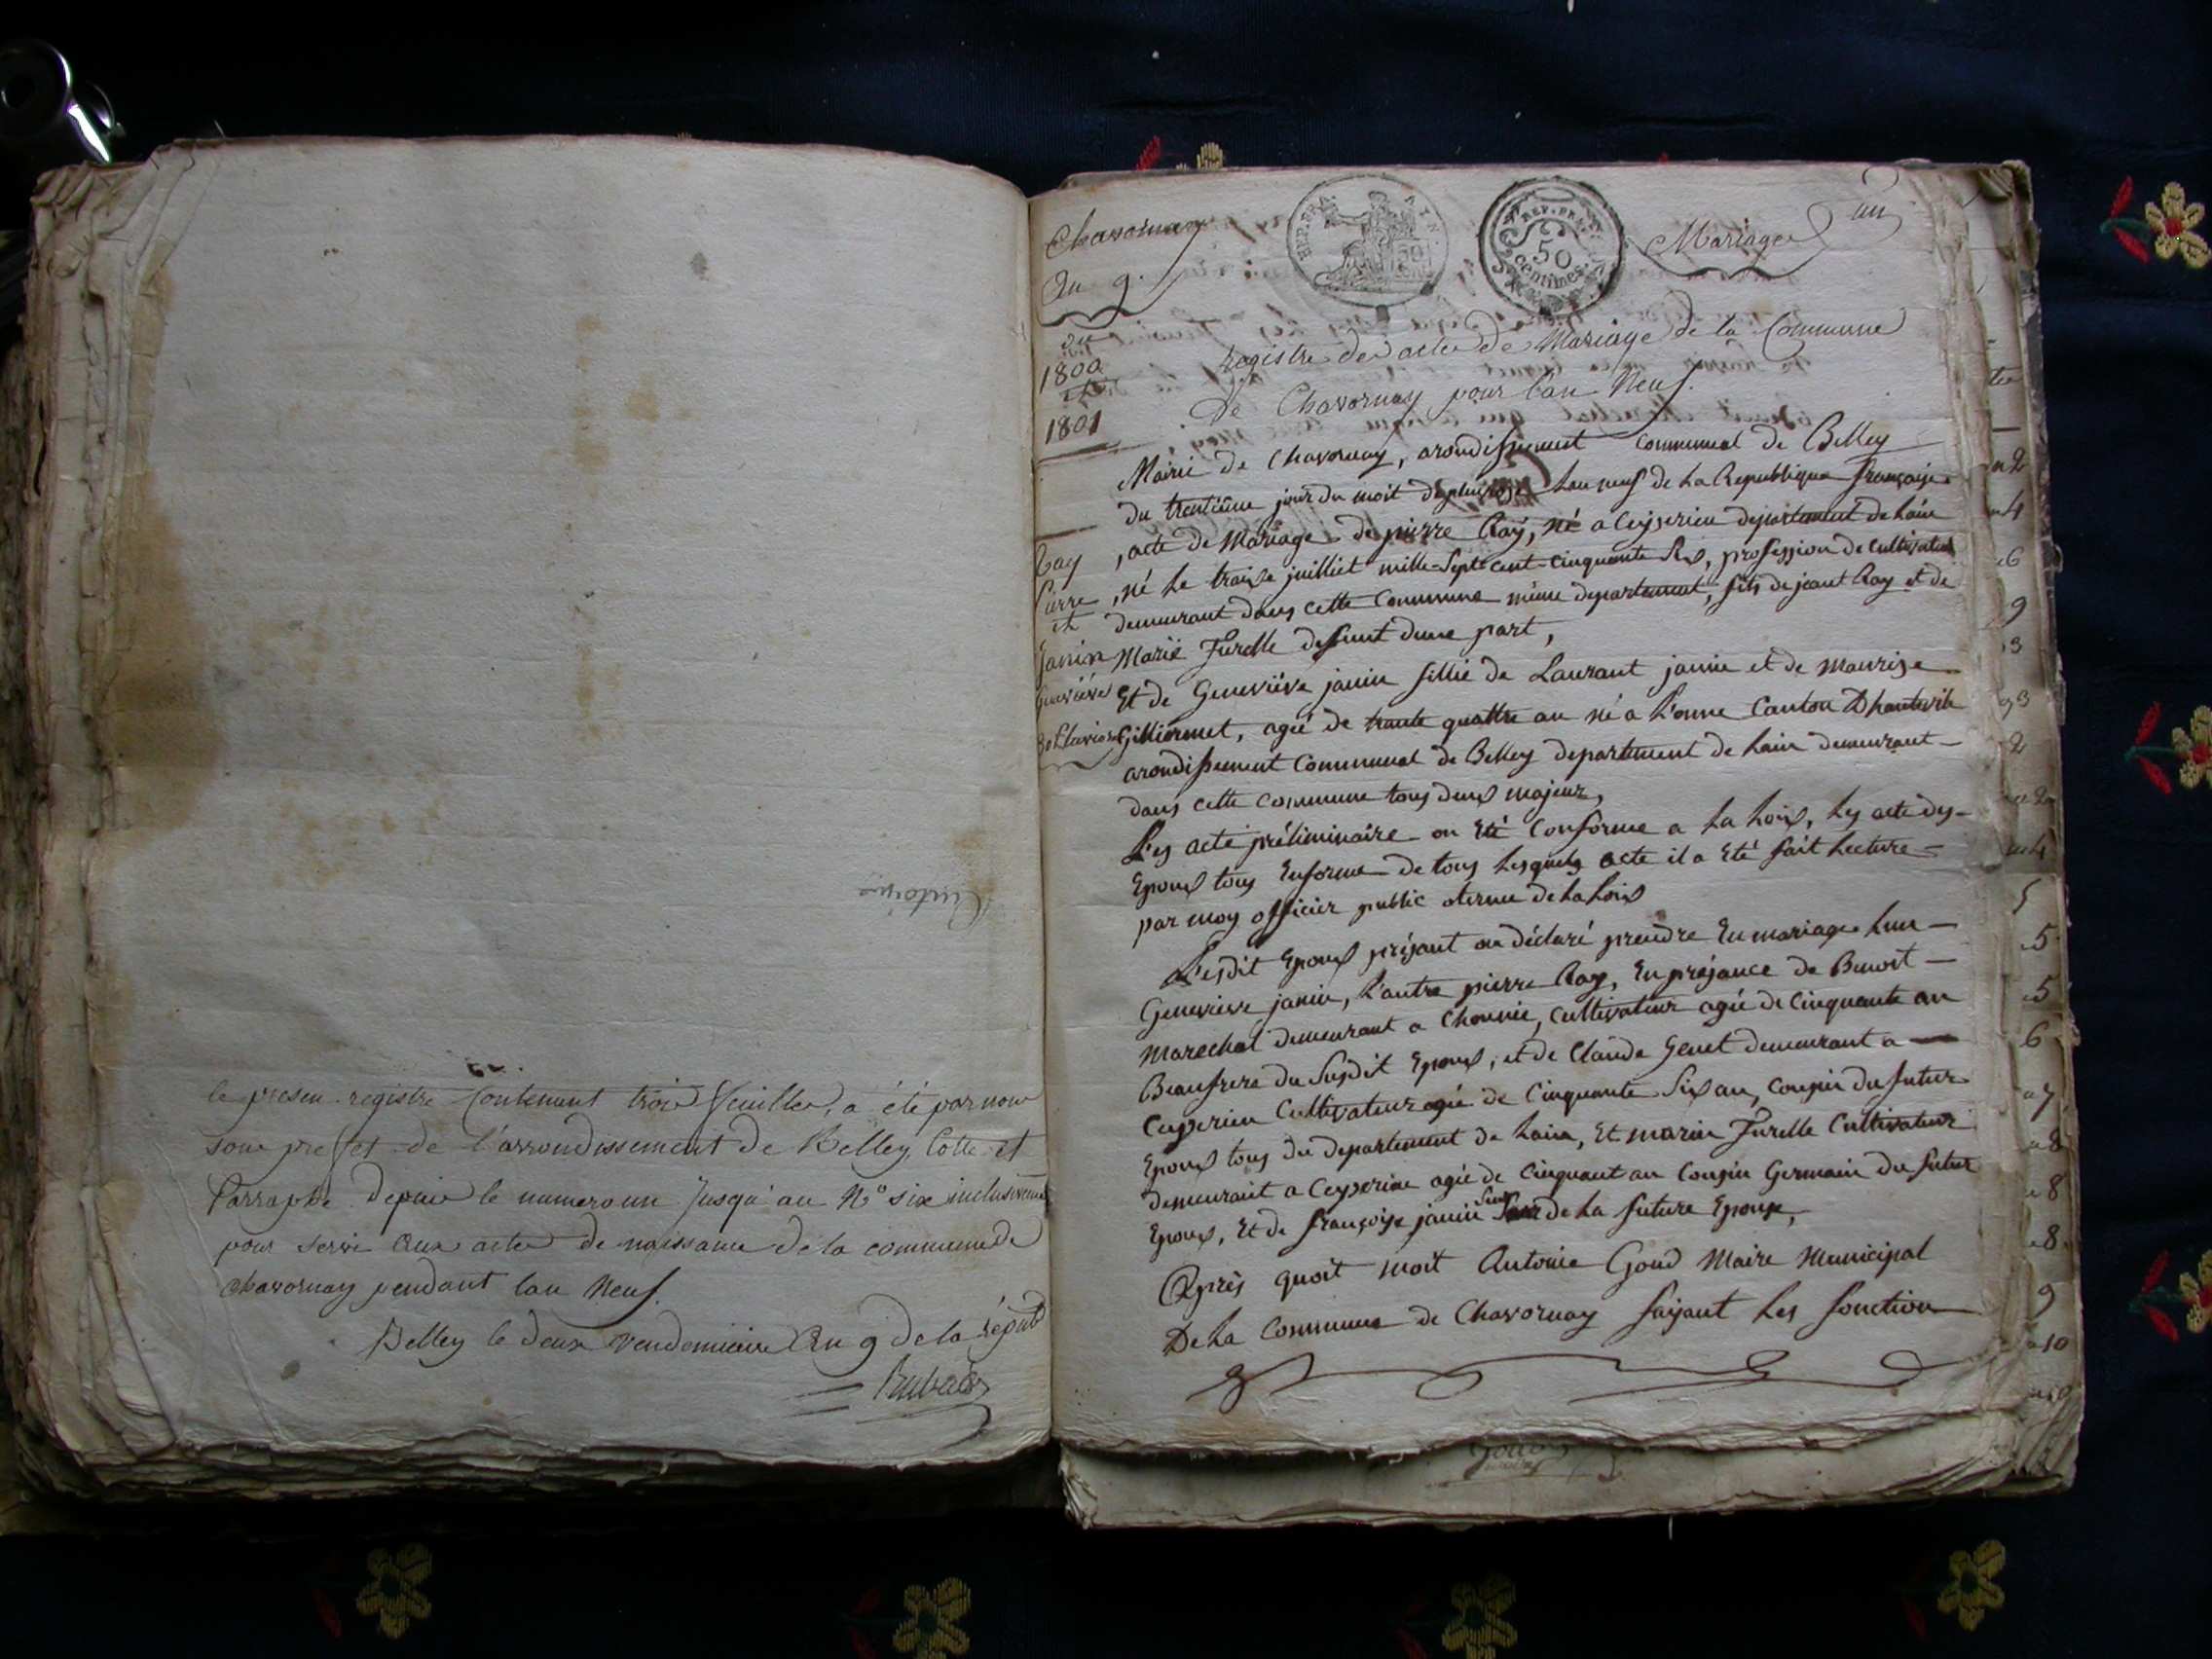 le presen registre Contenent trois feuilles, a été par nous
sous prefet de l'arrondissement de Belley, Cotté et
Parraphé depuis le numero un jusqu'au N° six inclusivement
pour servir aux actes de naissance de la commune de
Chavornay pendant l'an Neuf.
Belley le deux Vendemiaire An 9 de la répub
Antoine
Chavornay
An 9.
REP. FRA.
REP. FRA.
50
centimes
Mariages
un
ou
1800
et
1801
registre des actes de Mariage de la Commune
De Chavornay pour l'an Neuf.
Mairie de Chavornay, arondissement communal de Belley
du trentième jour du mois de pluviose lan neuf de La Republique française
, acte de Mariage de pierre Ray, né a Ceyzerieu departement de hain
, né le traize juilliet mille-Sept-cent-cinquante Six, profession de cultivateur
demeurant dans cette Commune même departement, fils de jeant Ray et de
Marie Jurelle deffunt dune part,
Ray
Pierre
et
Janin
Geneviève
30 Pluviose
Et de Geneviève janin fillie de Laurant janin et de Maurize
Gilliermet, agié de trante quattre an né a L'onne Canton Dhauteville
arondissement Communal de Belley departement de hain demeurant
dans cette commune tous deux majeur,
Les acte préliminaire on été Conforme a La Loix, les acte des
Epoux tous Enforme de tous lesquels acte il a Eté fait lecture
par moy officier public aternu de la Loix
Lesdit Epoux présant on déclaré prendre En mariage lun
Genevieve janin, L'autre pierre Ray, En présance de Benoit
Marechal demeurant a Chonnie, cultivateur agié de Cinquante an
Beaufrere du Susdit Epoux, et de Claude Genet demeurant a
Ceyzerieu Cultivateur agié de Cinquante Six an, Cousin du futur
Epoux tous du departement de hain, Et marin Jurelle Cultivateur
demeurant a Ceyzerieu agié de Cinquant an Cousin Germain du futur
Epoux, Et de françoise janin Seur de la future Epouse,
Après quoit moit Antoine Goud Maire Municipal
De La Commune de Chavornay faisant Les fonction